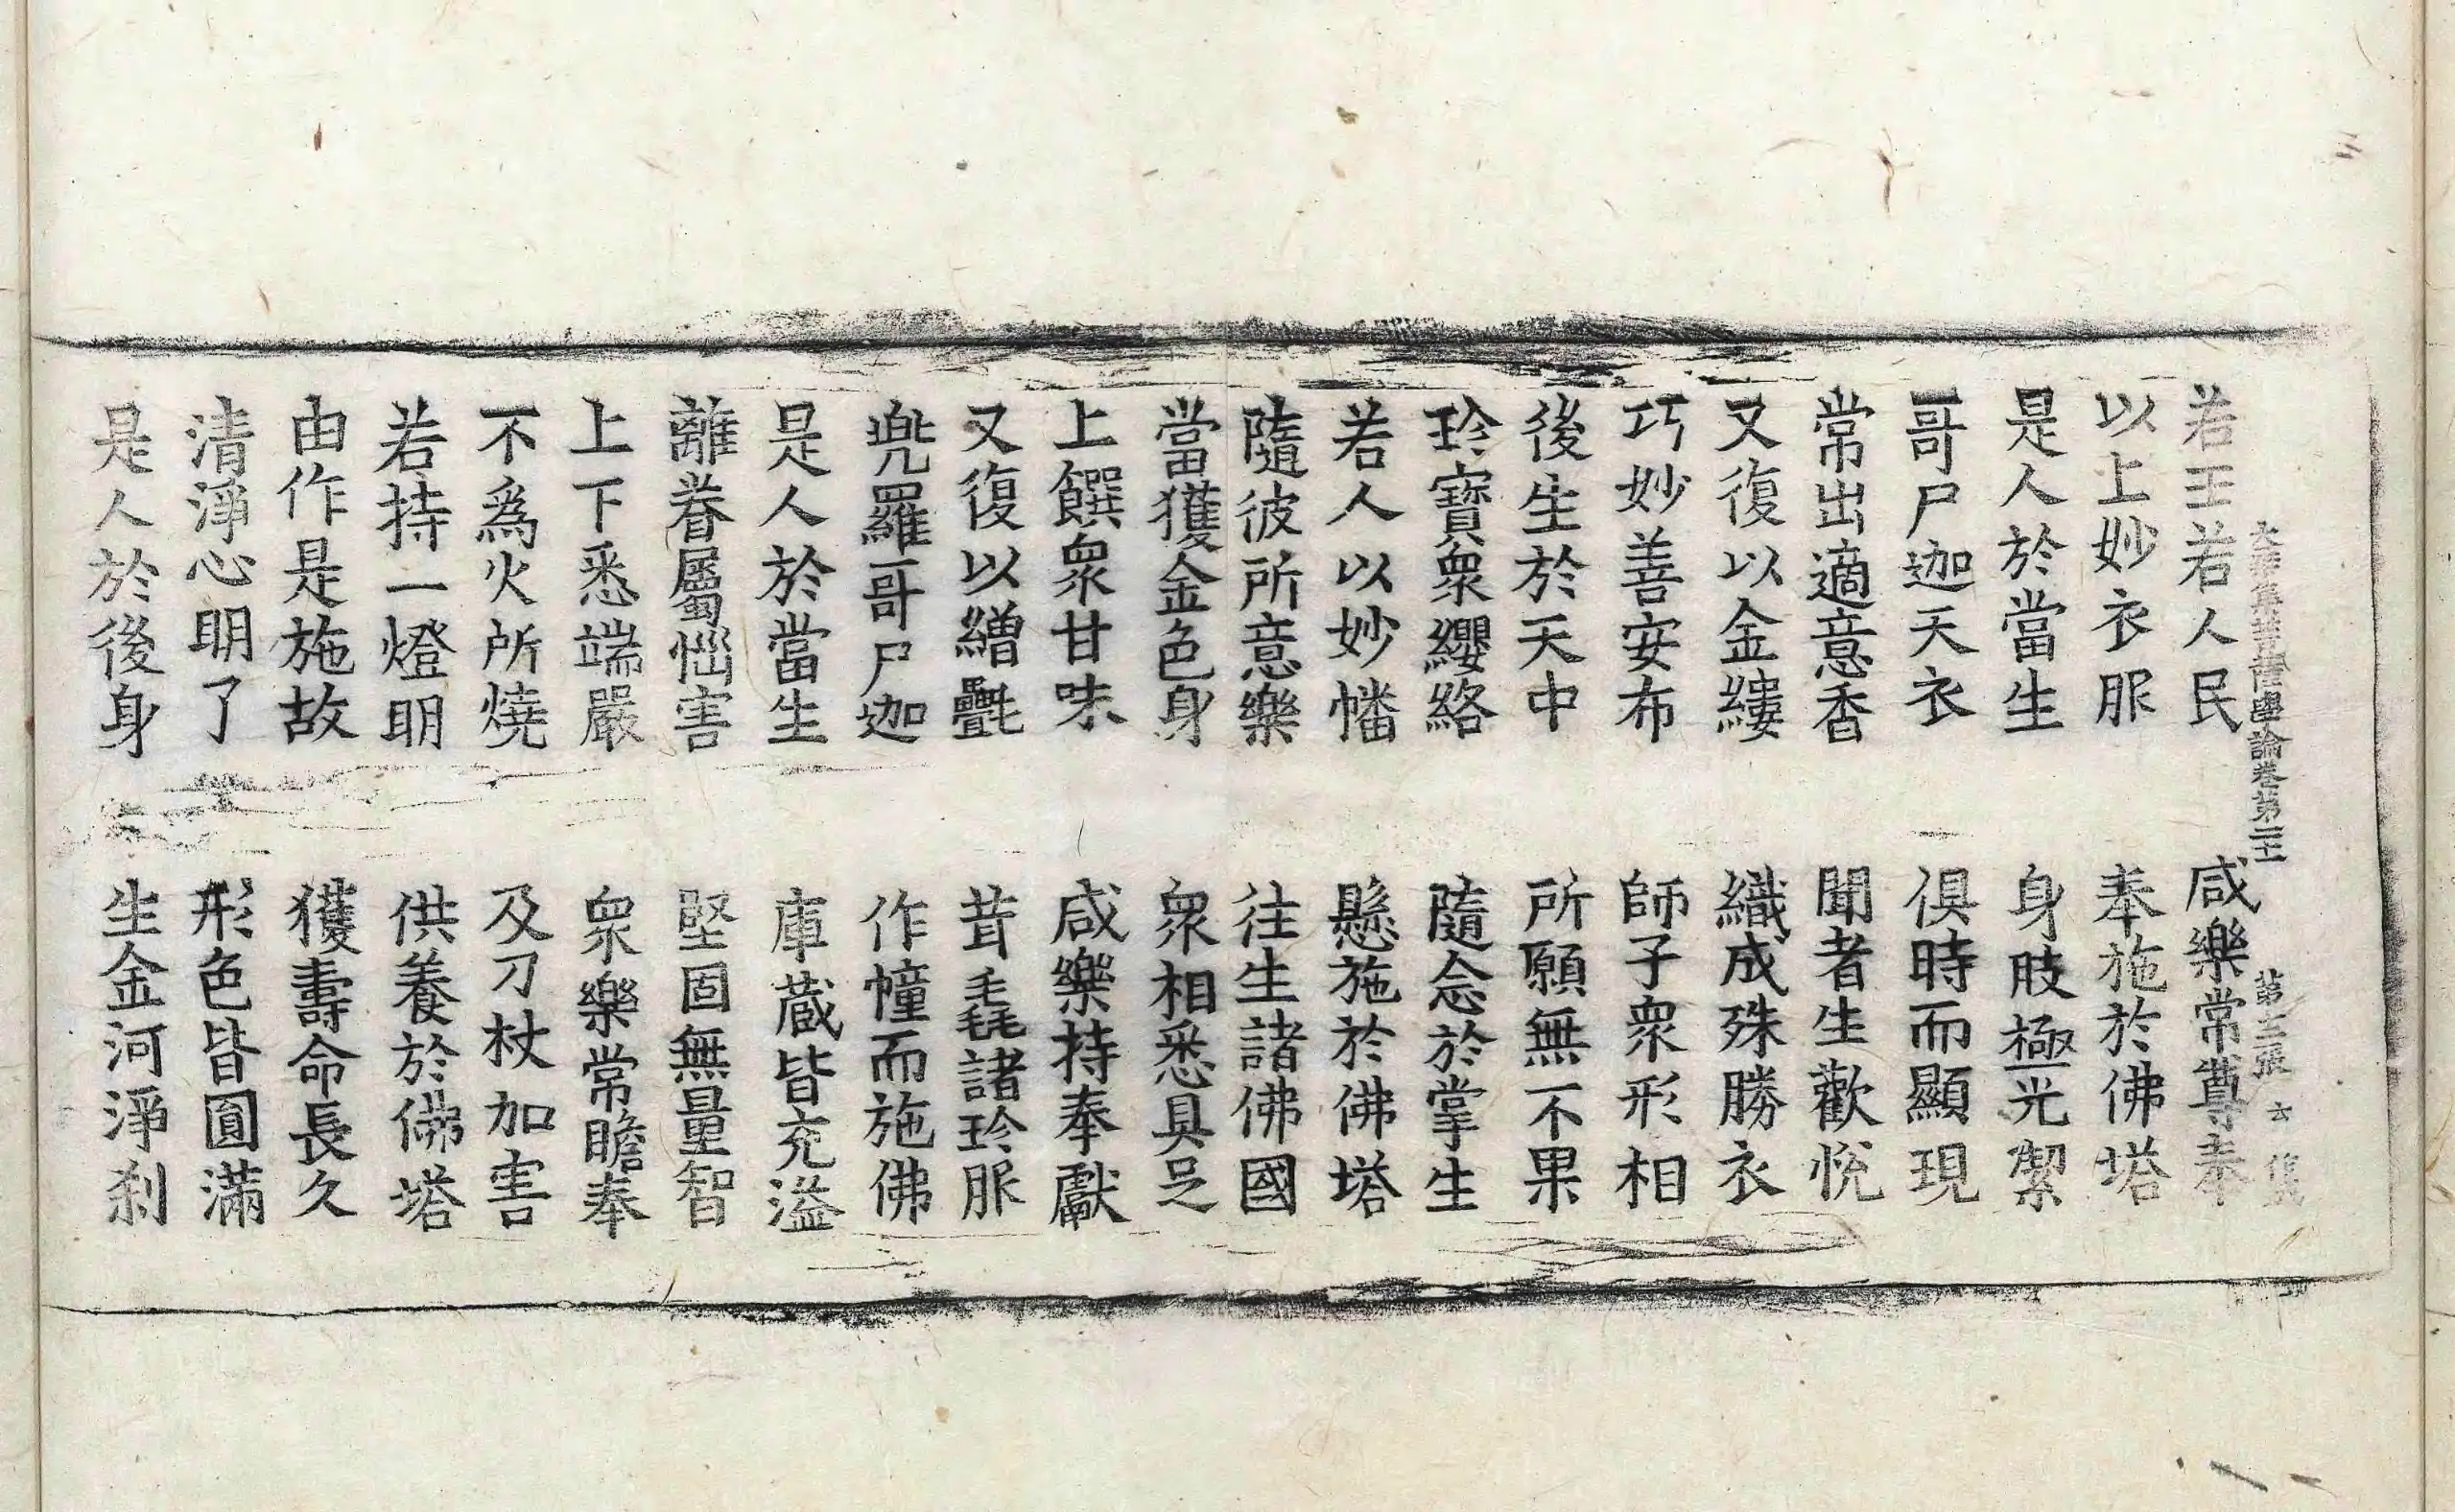 大乘集菩薩學論卷第二十二 第三張 六 集
若王若人民 咸樂常尊奉
以上妙衣服 奉施於佛塔
是人於當生 身肢極光潔
哥尸迦天衣 俱時而顯現
常出適意香 聞者生歡悅
又復以金縷 織成殊勝衣
巧妙善安布 師子衆形相
後生於天中 所願無不果
珍寶衆纓絡 隨念於掌生
若人以妙幡 懸施於佛塔
隨彼所意樂 往生諸佛國
當獲金色身 衆相悉具足
上饌衆甘味 咸樂持奉獻
又復以繒㲲 茸毳諸珍服
兠羅哥尸迦 作幢而施佛
是人於當生 庫蔵皆充溢
離眷屬惱害 堅固無量智
上下悉端嚴 衆樂常瞻奉
不爲火所燒 及刀杖加害
若持一燈明 供養於佛塔
由作是施故 獲壽命長久
清淨心明了 形色皆圓滿
是人於後身 生金河淨刹